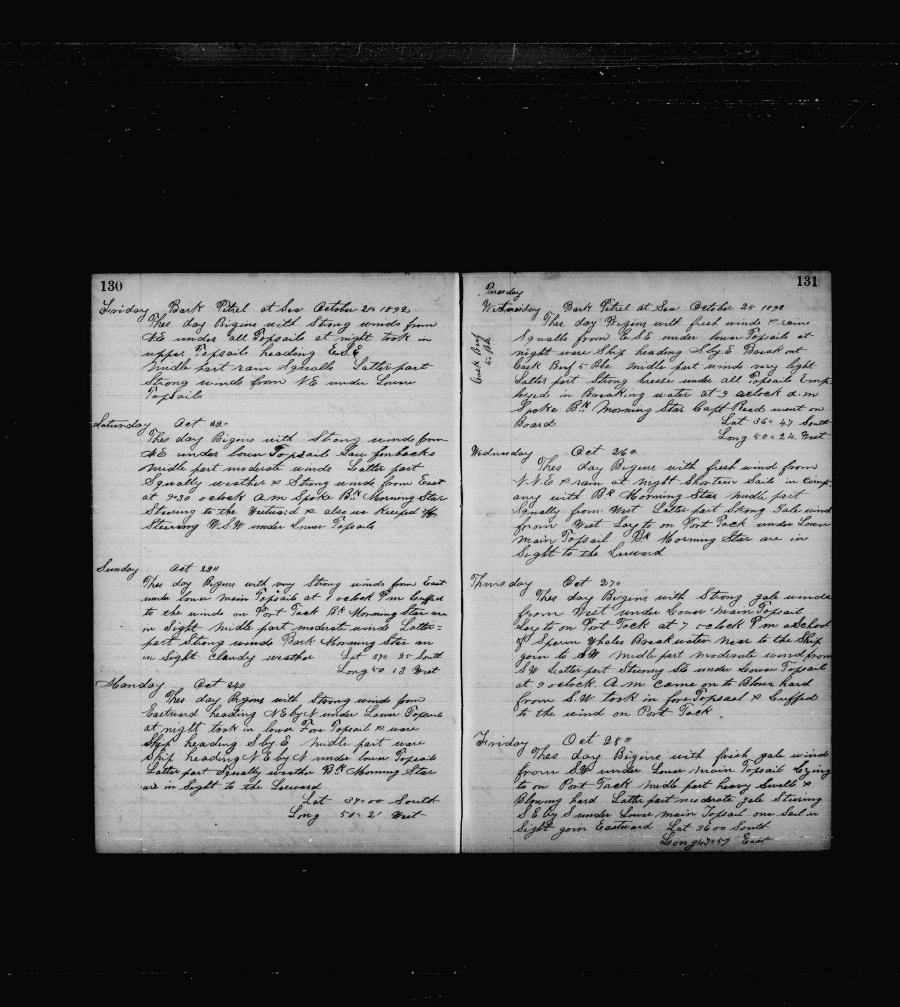 130
Friday Bark Petrel at Sea October 21 1892
Thes day Bigins with Strong winds from
NE under all Topsails at night took in
upper Topsails heading E.S.E
Midle part rain Squalls Latter part
Strong winds from NE under Lower
Topsails
Saturday Oct 22"
Thes day Bigins with Strong winds from
NE under lower Topsails Saw finbacks
Midle part moderate winds Latter part
Squally weather & Strong winds from East
at 9-30 oclock A.M Spoke Bk Morning Star
Stearing to the Westward & also we Keeped off
Steering W.S.W under Lower Topsails
Sunday Oct 23"
Thes day Bigins with very Strong winds from East
under lower main Topsails at 1 oclock P.m Luffed
to the winds on Port Tack Bk Morning Star are
in Sight Midle part moderate winds Latter=
part Strong winds Bark Morning Star are
in Sight Cloudy weather Lat 37" 25 South
Long 50 13 West
Monday Oct 24"
Thes day Bigins with Strong winds from
Eastward heading NE by N under Lower Topsails
at night took in lower Fore Topsail & ware
Ship heading S by E Midle part ware
Ship heading NE by N under lower Topsails
Latter part Squally weather Bk Morning Star
are in Sight to the Leeward
Lat 37"00 South
Long 50" 2' West
131
Tuesday
Bark Petrel at Sea October 25 1892
Thes day Bigins with fresh winds & rain
Squalls from ESE under lower Topsails at
night ware Ship heading S by E Break out
Cask Beef 5 Bbl
Cask Beef 5 Bbl Midle part winds very light
Latter part Strong breeze under all Topsails Emp-
loyed in Breaking water at 9 oclock a.m
Spoke Bk Morning Star Capt Reed went on
Board Lat 36" 47 South
Long 50" 24 West
Wednesday Oct 26"
Thes day Bigins with fresh wind from
NNE & rain at night Shorten Sails in Comp-
any with Bk Morning Star Midle part
Squally from West Latter part Strong Gale wind
from West Lay to on Port Tack under Lower
Main Topsail Bk Morning Star are in
Sight to the Leeward
Thursday Oct 27"
Thes day Bigins with Strong gale winds
from West under Lower Main Topsail
Lay to on Port Tack at 7 oclock P.m a School
of Sperm Whales Breakwater near to the Ship
goin to SW Midle part moderate wind from
SW Latter part Steering under Lower Topsails
at 9 oclock A.M came on to Blow hard
from S.W took in fore Topsail & Luffed
to the wind on Port Tack
Friday Oct 28"
Thes day Bigins with fresh gale wind
from SW under Lower Main Topsail Lying
to on Port Tack Midle part heavy Swells &
Blowing hard Latter part moderate gale Stering
SE by S under Lower main Topsail one Sail in
Sight goin Eastward Lat 36 00 South
Long 47"59 East